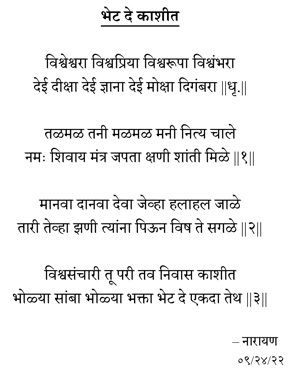 भेट दे काशीत
विश्वेश्वरा विश्वप्रिया विश्वरूपा विश्वंभरा
देई दीक्षा देई ज्ञाना देई मोक्षा दिगंबरा ||धृ.||
तळमळ तनी मळमळ मनी नित्य चाले
नमः शिवाय मंत्र जपता क्षणी शांती मिळे ||१||
मानवा दानवा देवा जेव्हा हलाहल जाळे
तारी तेव्हा झणी त्यांना पिऊन विष ते सगळे ||२||
विश्वसंचारी तू परी तव निवास काशीत
भोळ्या सांबा भोळ्या भक्ता भेट दे एकदा तेथ ||३||
– नारायण
०९/२४/२२